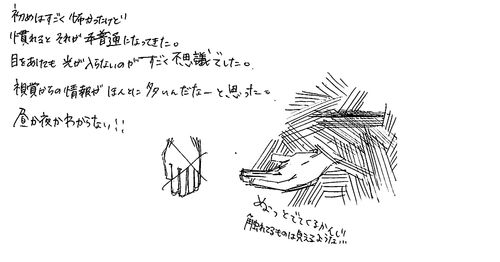 初めはすごく怖かったけど
慣れると それが普通になってきた。
目をあけても 光が入らないのが すごく不思議でした。
視覚からの情報が ほんとに 多いんだなーと思った。
昼か夜かわからない!!
ぬっとでてくるかんじ
触れてるものは見えるような…